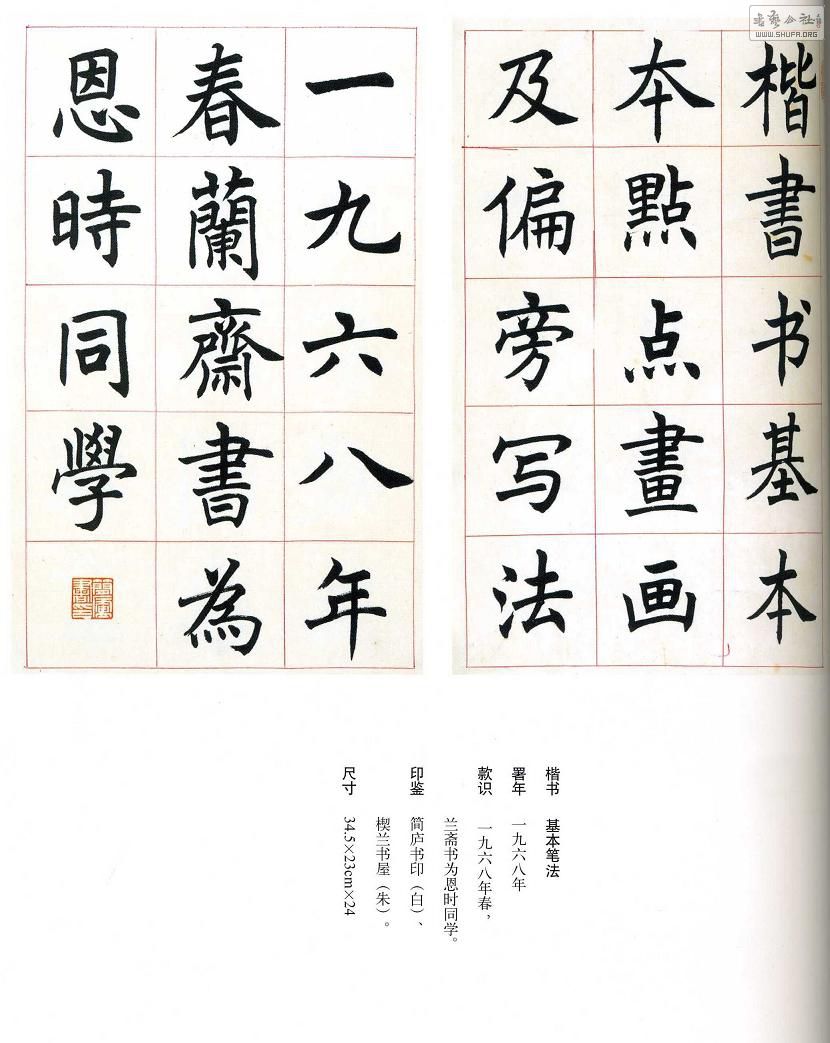 楷書书基本
本點点畫画
及偏旁写法
一九六八年
春蘭齋書為
恩時同學
楷书 基本笔法
署年 一九六八年
款识 一九六八年春，
兰斋书为恩时同学。
印鉴 简庐书印（白）、
楔兰书屋（朱）。
尺寸 34.5×23cm×24
WWW.SHUFA.ORG